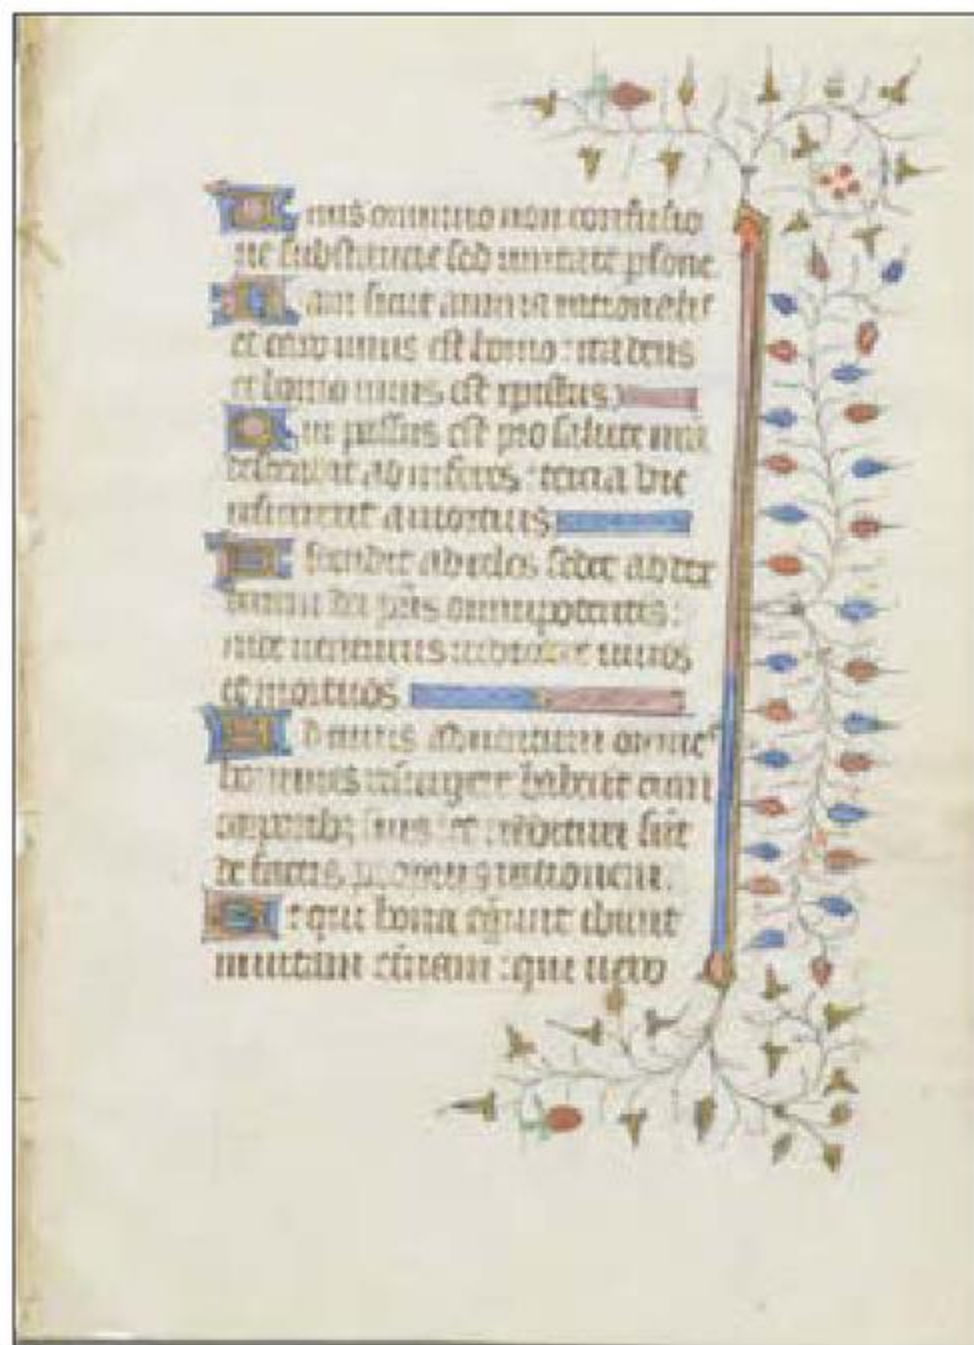 Unus omnino non confusio
ne substancie sed unitate psone
Nam sicut anima rationalis
et caro unus est homo : ita deus
et homo unus est xpistus
Qui passus est pro salute nra
descendit ad inferos : tercia die
resurrexit a mortuis
Ascendit ad celos sedet ad dex
teram dei pris omnipotentis :
inde venturus iudicare vivos
et mortuos
Ad cuius adventum omnes
homines resurgere habent cum
corporibz suis : et reddituri sūt
de factis propriis rationem.
Et qui bona egerunt ibunt
in vitam eternam : qui vero